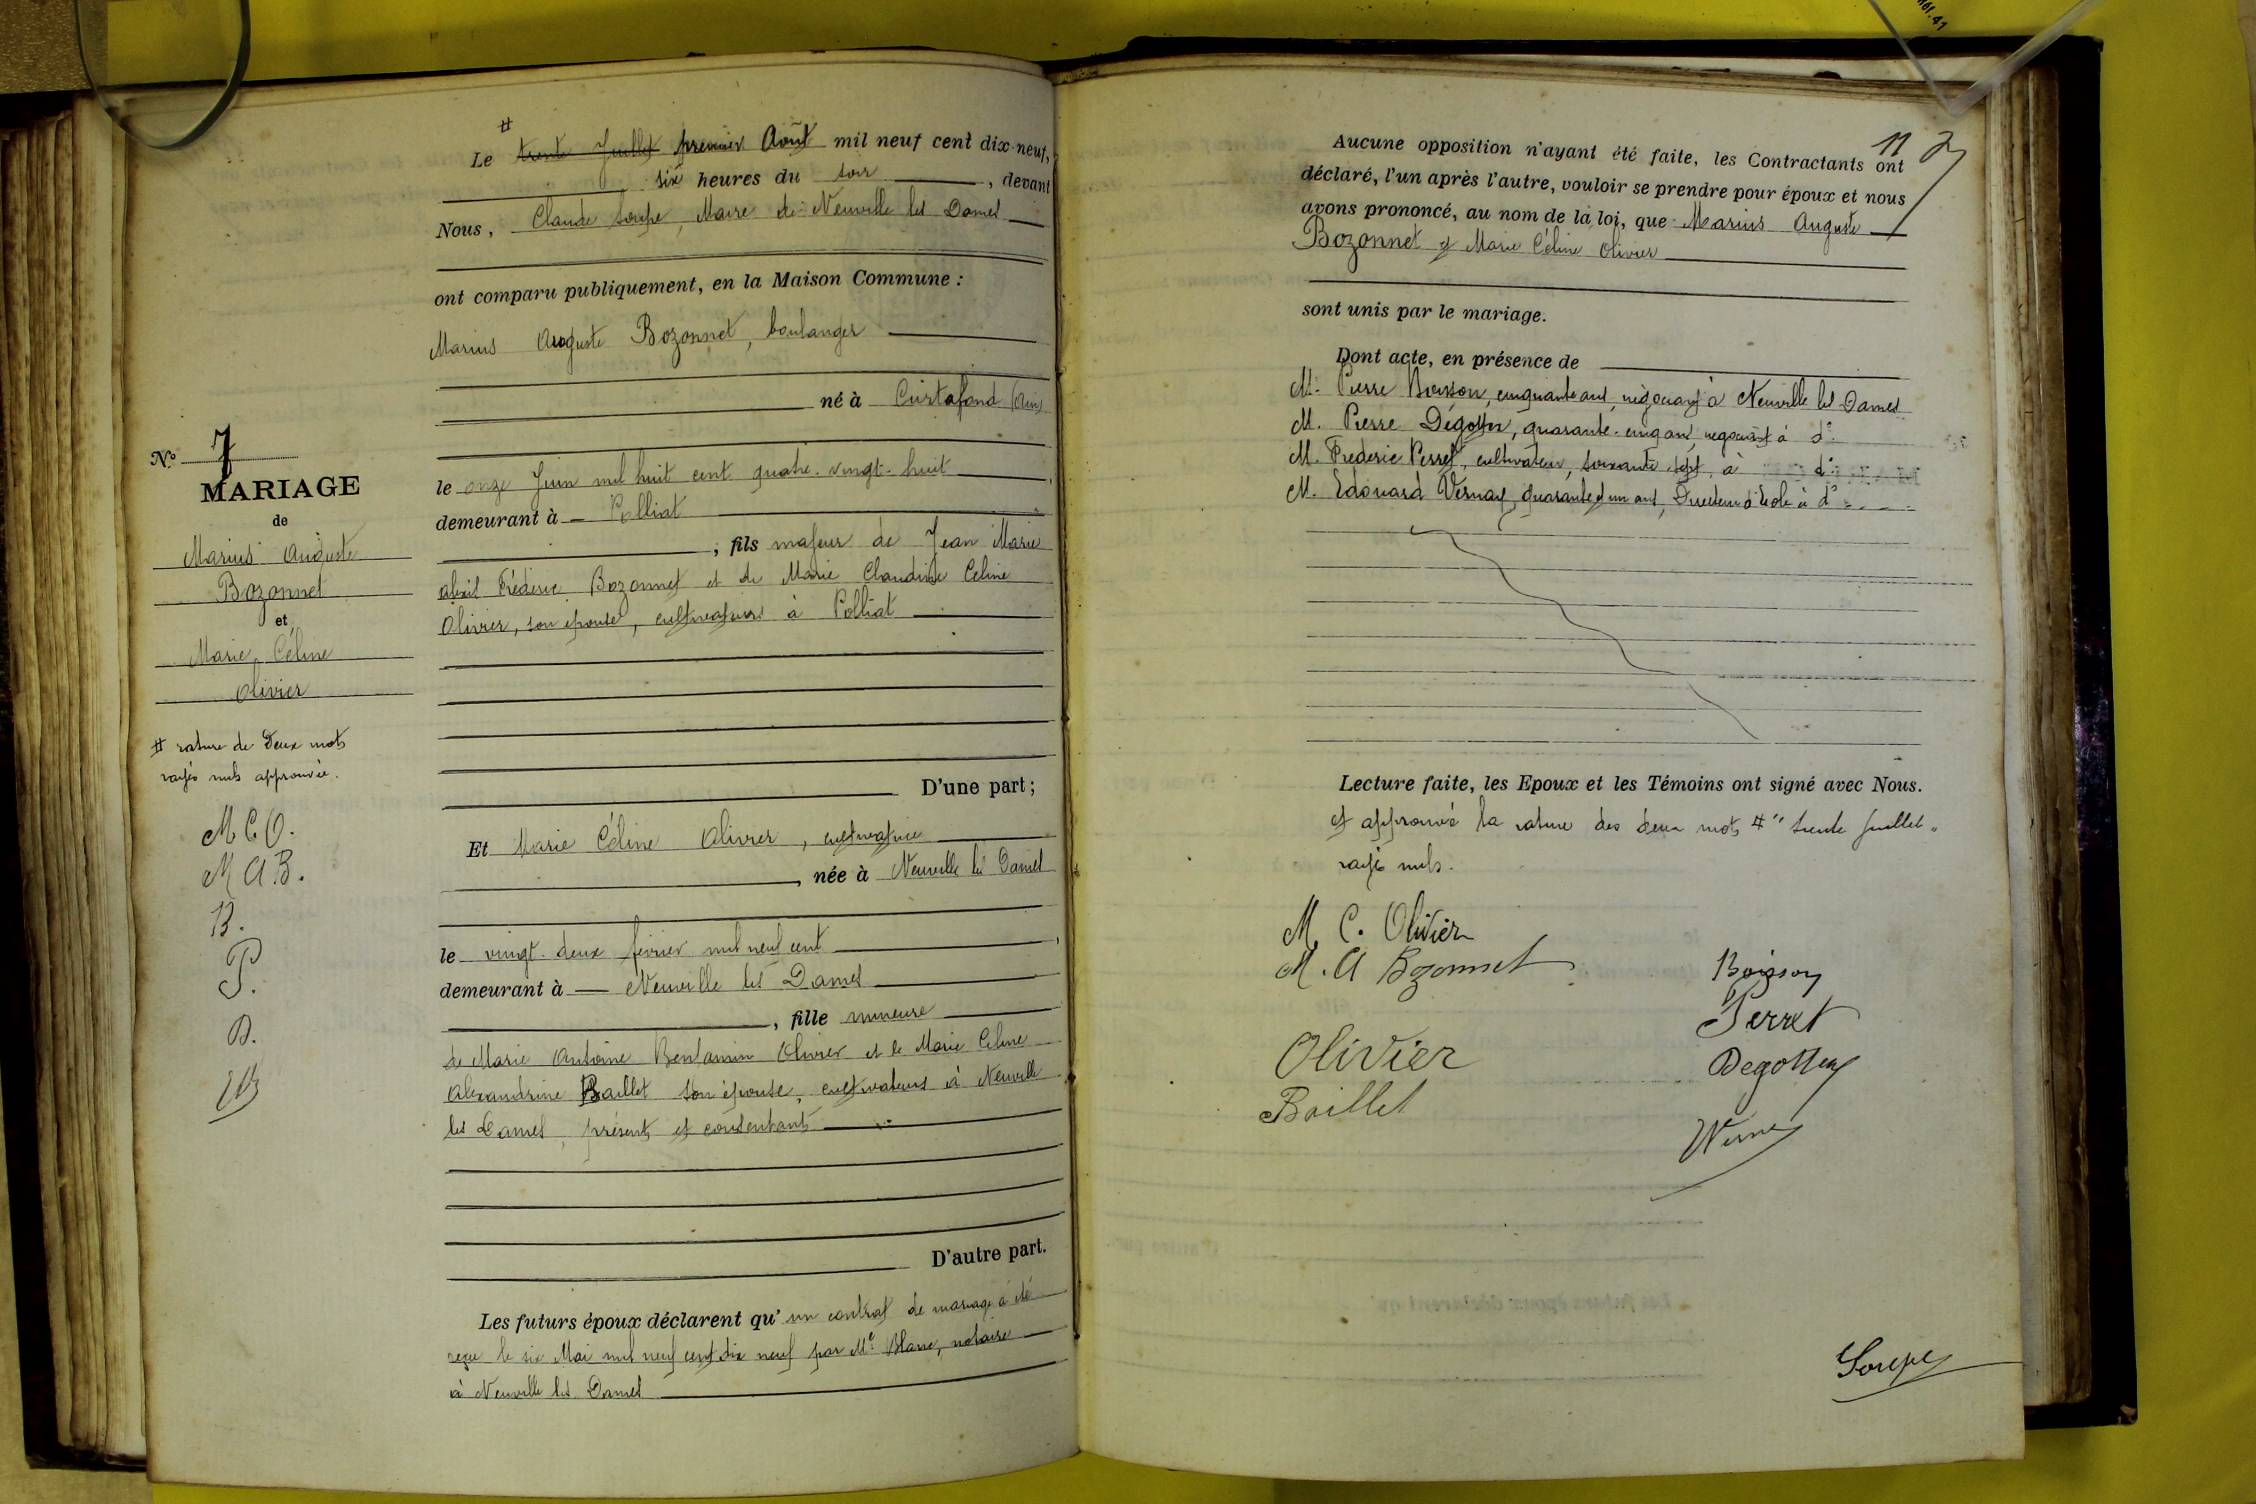 M61.41
#
Le trente Juillet premier Août mil neuf cent dix-neuf,
six heures du soir, devant
Nous, Claude Soupe, Maire de Neuville les Dames
ont comparu publiquement, en la Maison Commune :
Marius Auguste Bozonnet, boulanger
né à Curtafond (Ain)
le onze Juin mil huit cent quatre-vingt-huit
demeurant à Polliat
, fils majeur de Jean Marie
Frédéric Bozonnet et de Marie Claudine Celine
Olivier, son épouse, cultivateurs à Polliat
D'une part;
Et Marie Céline Olivier, cultivatrice
, née à Neuville les Dames
le vingt-deux février mil neuf cent
demeurant à Neuville les Dames
, fille mineure
de Marie Antoine Benjamin Olivier et de Marie Celine
Alexandrine Baillet son épouse, cultivateurs à Neuville
les Dames, présents et consentants
D'autre part.
Les futurs époux déclarent qu'un contrat de mariage a été
reçu le six Mai mil neuf cent dix neuf par Me Blanc, notaire
à Neuville les Dames
No 7
MARIAGE
de
Marius Auguste
Bozonnet
et
Marie Céline
Olivier
# rature de deux mots
rayés nuls approuvée.
M C O.
M A B.
B.
P.
D.
11
Aucune opposition n'ayant été faite, les Contractants ont
déclaré, l'un après l'autre, vouloir se prendre pour époux et nous
avons prononcé, au nom de la loi, que Marius Auguste
Bozonnet et Marie Céline Olivier
sont unis par le mariage.
Dont acte, en présence de
M. Pierre Boisson, cinquante ans, négociant à Neuville les Dames
M. Pierre Degottex, quarante-cinq ans, négociant à do
M. Frédéric Perret, cultivateur, soixante sept, à do
M. Edouard Vernay, quarante et un ans, Directeur d'Ecole à do
Lecture faite, les Epoux et les Témoins ont signé avec Nous.
et approuvé la rature des deux mots # "trente Juillet"
rayés nuls.
M. C. Olivier
M. A Bozonnet
Boisson
Perret
Olivier
Degottex
Baillet
Soupe